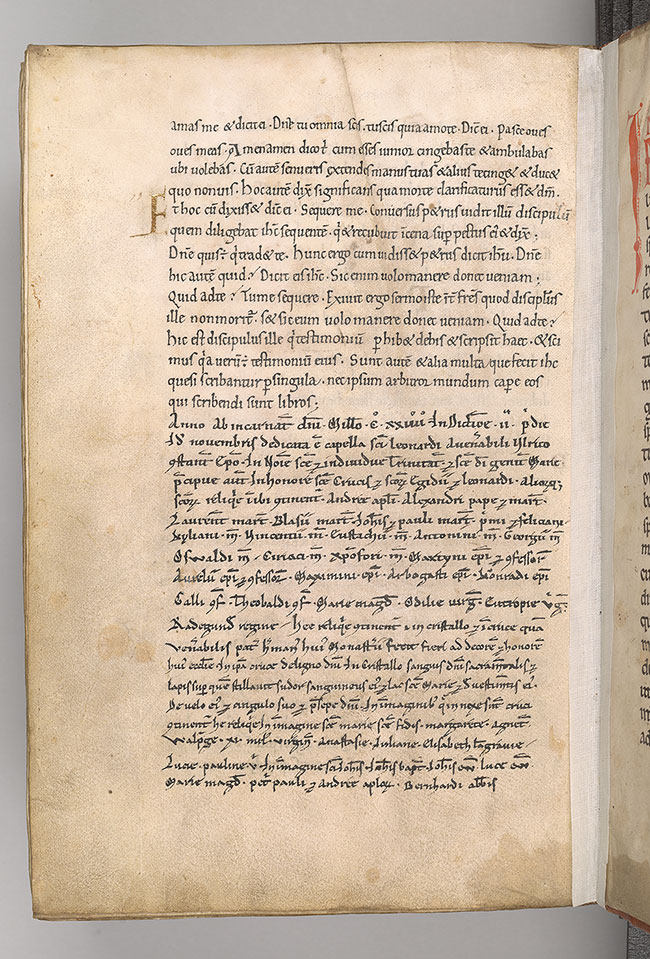 amas me & dicit ei. Dn̄e tu omnia scis. tu scis quia amo te. Dic̄ ei. Pasce oves
oves meas. Amen amen dico t̄. cum esses iunior cingebas te & ambulabas
ubi volebas. Cū autē senueris extendes manus tuas & alius te cing& & duc&
quo non vis. Hoc autē dix̄ significans qua morte clarificaturus ess& dm̄.
Et hoc cū dixiss& dic̄ ei. Sequere me. Conversus p&rus vidit illū discipulū
quem diligebat ihc̄ sequentē. q̄ & recubuit in cena sup̄ pectus ei & dix̄;
Dn̄e quis ē q̄ trad& te. Hunc ergo cum vidiss& p&rus dicit ihū. Dn̄e
hic autē quid? Dicit ei ihc̄. Sic eum volo manere donec veniam.
Quid ad te? Tu me sequere. Exivit ergo sermo iste int̄ frēs quod discipulus
ille non morit̄. s& sic eum volo manere donec veniam. Quid ad te?
Hic est discipulus ille q̄ testimoniū phib& de his & scripsit haec. & sci
mus q̄a verū ē testimoniū eius. Sunt autē & alia multa que fecit ihc̄
que si scribantur p singula. nec ipsum arbitror mundum cap̄e eos
qui scribendi sunt libros;
Anno ab incarnat̄ dn̄i. Mill̄o. c̄. xxiiii. Indictiōe. ii. p̄die
Id̄ novembris dedicata ē capella sc̄i leonardi a ven̄abili Ulrico
9stant̄ ep̄o. In noīe scē & individue trinitat̄. & scē dī genit̄c Marie
p̄cipue aut̄ in honorē scē crucis & scōr̄ Egidii & leonardi. alior̄q;
scōr̄ reliq̄e ibi 9tinent̄. Andree apl̄i. Alexandri pape & mart̄.
Laurentii mart̄. Blasii mart̄. Ioh̄is & pauli mart̄. p̄mi & feliciani
Kyliani. m̄. Vincentii. m̄. Eustachii. m̄. Antonini. m̄. Georgii m̄
Oswaldi m̄. Ciriaci. m̄. Xp̄ofori. m̄. Martyni ep̄i & 9fessor̄
Aurelii ep̄i & 9fessor̄. Maximini. ep̄i. Arbogasti ep̄i. Konradi ep̄i
Galli 9f̄. Theobaldi 9f̄. Marie magd̄. Odilie virḡ. Eutropie v̄ḡ.
Radegund̄ regine. Hee reliq̄e 9tinent̄ in cristallo & in cruce quā
ven̄abilis pat̄ h̄man̄ hui monast̄ii fecit fieri ad decorē & honorē
hui eccl̄ie. In ip̄a cruce de ligno dn̄i. In cristallo sanguis dn̄i sacram̄talis &
lapis sup̄ quem stillavit sudor sanguineus ei & lac scē Marie & d̄ vestim̄tis ei.
De velo ei & cingulo suo & p̄sepe dn̄i. In imaginib; q̄ in ... sunt cruci
9tinent̄ he reliq̄e. In imagine scē marie scē fidis. margarete. Agnet̄.
Walp̄ge. xi. mil̄. virgin̄. Anastasie. Iuliane. Elisabeth
Lucie. pauline v̄. In imagine sc̄i ioh̄is. Ioh̄is bapt̄. Ioh̄is ew̄. luce ew̄.
Marie magd̄. pet̄ pauli & Andree aplor̄. Bernhardi abb̄is